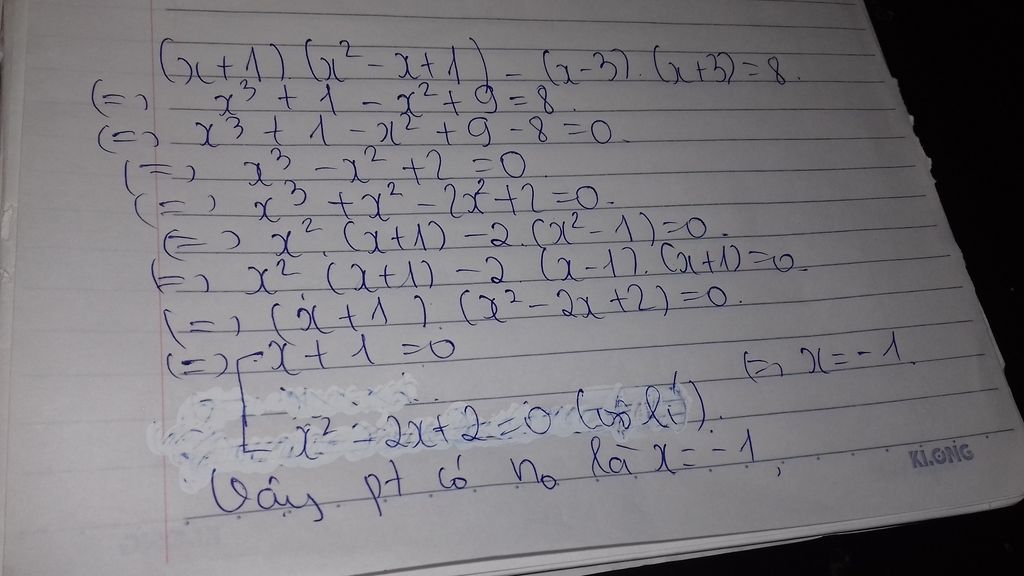 (x+1) (x² - x+1) - (x-3). (x+3) = 8.
(=) x³ + 1 - x² + 9 = 8.
(=) x³ + 1 - x² + 9 - 8 = 0.
(=) x³ - x² + 2 = 0.
(=) x³ + x² - 2x² + 2 = 0.
(=) x². (x+1) - 2. (x² - 1) = 0.
(=) x². (x+1) - 2. (x-1). (x+1) = 0.
(=) (x+1). (x² - 2x + 2) = 0.
(=) [ x + 1 = 0
x² - 2x + 2 = 0 (vô lí). (=) x = -1.
Vậy pt có n₀ là x = -1,
KLONG